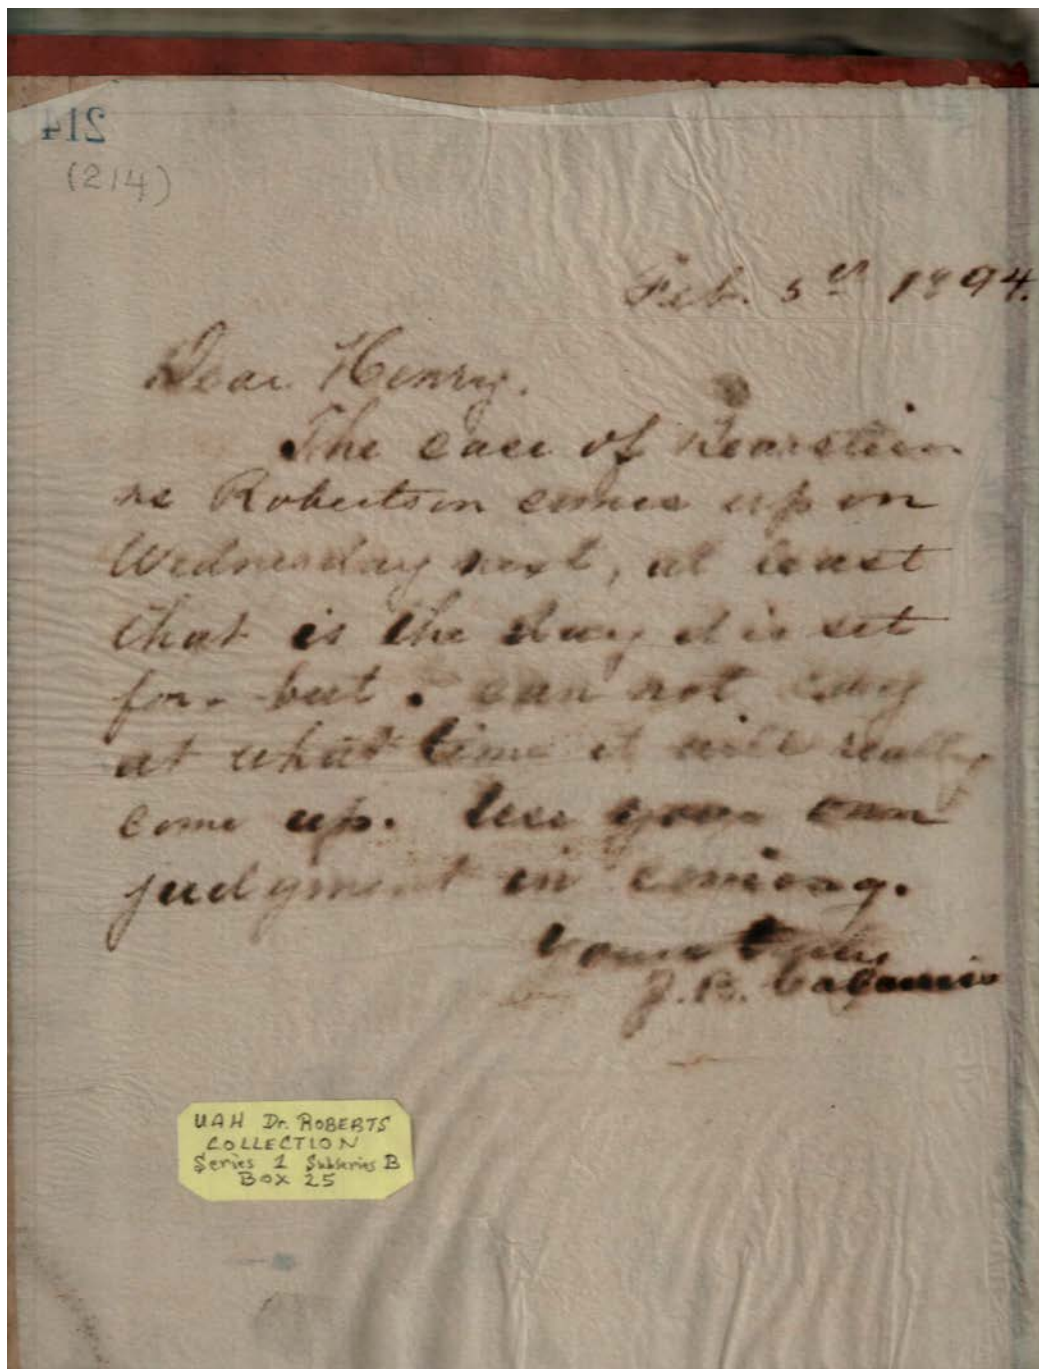 214
(214)
Feb. 5th 1894.
Dear Henry.
The case of
vs Robertson comes up on
Wednesday next, at least
that is the day it is set
for. but I can not say
at what time it will really
come up. Use your own
judgment in coming.
Yours truly
J. B.
UAH Dr. ROBERTS
COLLECTION
Series 1 Subseries B
BOX 25